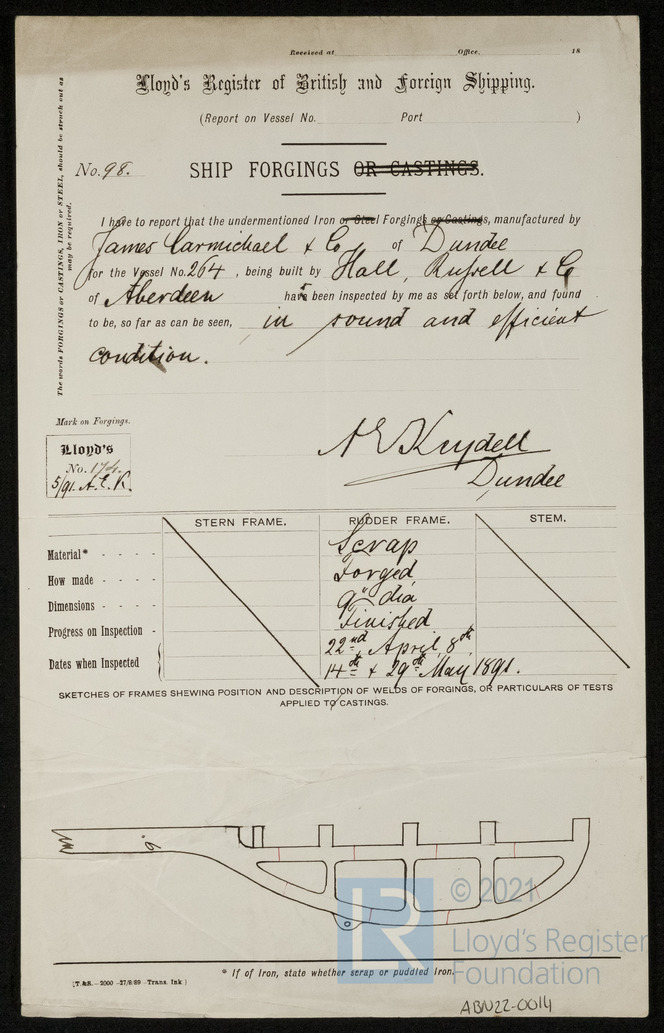 Received at Office, 18
Lloyd's Register of British and Foreign Shipping.
(Report on Vessel No. Port )
The words FORGINGS or CASTINGS, IRON or STEEL, should be struck out as
may be required.
No. 98. SHIP FORGINGS OR CASTINGS.
I have to report that the undermentioned Iron or Steel Forgings or Castings, manufactured by
James Carmichael & Co of Dundee
for the Vessel No. 264, being built by Hall, Russell & Co
of Aberdeen have been inspected by me as set forth below, and found
to be, so far as can be seen, in sound and efficient
condition.
Mark on Forgings.
Lloyd's
No. 174.
5/91. A.E.K.
Dundee
STERN FRAME. RUDDER FRAME. STEM.
Material* - - - - Scrap
How made - - - - Forged
Dimensions - - - - 9" dia
Progress on Inspection - Finished
Dates when Inspected 22nd April, 8th
14th & 29th May 1891.
SKETCHES OF FRAMES SHEWING POSITION AND DESCRIPTION OF WELDS OF FORGINGS, OR PARTICULARS OF TESTS
APPLIED TO CASTINGS.
9"
© 2021
Lloyd's Register
Foundation
* If of Iron, state whether scrap or puddled Iron.
(T.&S.—2000—27/8/89—Trans. Ink)
ABN22-0014